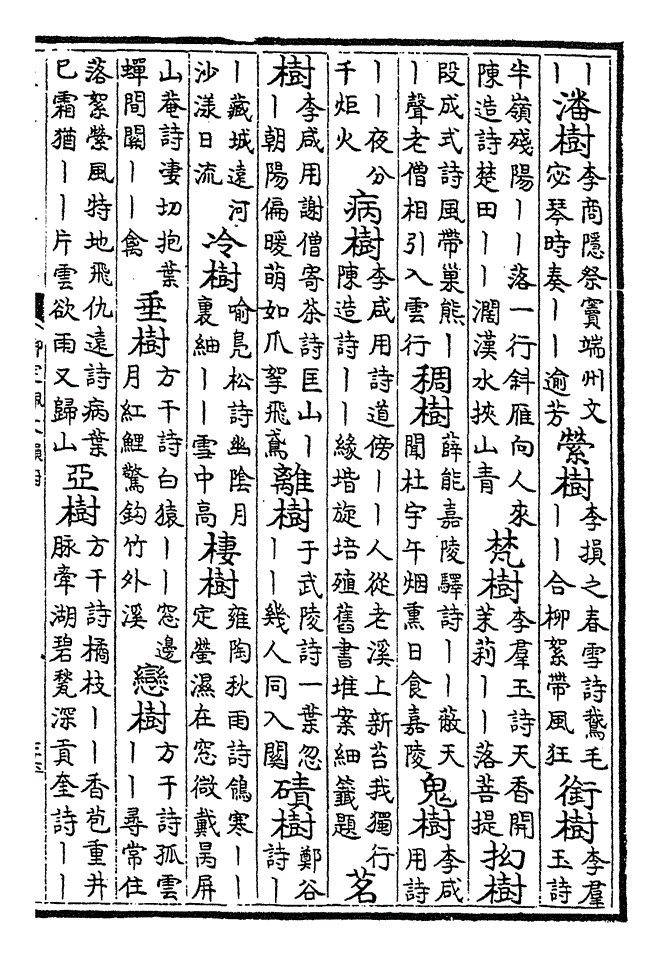 丨丨潘樹李商隱祭竇端州文宓琴時奏丨丨逾芳縈樹李損之春雪詩鵞毛丨丨合柳絮帶風狂銜樹李羣玉詩
半嶺殘陽丨丨落一行斜雁向人來陳造詩楚田丨丨濶漢水挾山青梵樹李羣玉詩天香開茉莉丨丨落菩提拗樹
段成式詩風帶巢熊丨丨聲老僧相引入雲行稠樹薛能嘉陵驛詩丨丨蔽天聞杜宇午烟熏日食嘉陵鬼樹李咸用詩
丨丨夜分千炬火病樹李咸用詩道傍丨丨人從老溪上新苔我獨行陳造詩丨丨緣堦旋培殖舊書堆案細籤題茗
樹李咸用謝僧寄茶詩匡山丨丨朝陽偏暖萌如爪拏飛鳶離樹于武陵詩一葉忽丨丨幾人同入關磧樹鄭谷詩丨
丨藏城遠河沙漾日流冷樹喻鳧松詩幽陰月裏紬丨丨雪中高棲樹雍陶秋雨詩鴿寒丨丨定螢濕在窓微戴昺屏
山菴詩凄切抱葉蟬間關丨丨禽垂樹方干詩白猿丨丨窓邊月紅鯉驚鈎竹外溪戀樹方干詩孤雲丨丨尋常住
落絮縈風特地飛仇遠詩病葉巳霜猶丨丨片雲欲雨又歸山亞樹方干詩橘枝丨丨香苞重井脉牽湖碧甃深貢奎詩丨丨